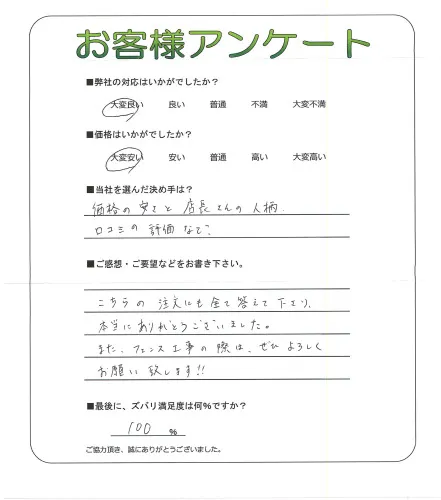 お客様アンケート
■弊社の対応はいかがでしたか？
大変良い 良い 普通 不満 大変不満
■価格はいかがでしたか？
大変安い 安い 普通 高い 大変高い
■当社を選んだ決め手は？
価格の安さと店長さんの人柄.
口コミの評価など?
■ご感想・ご要望などをお書き下さい。
こちらの注文にも全て答えて下さり、
本当にありがとうございました。
また、フェンス工事の際は、ぜひよろしく
お願い致します!!
■最後に、ズバリ満足度は何%ですか？
100 %
ご協力頂き、誠にありがとうございました。